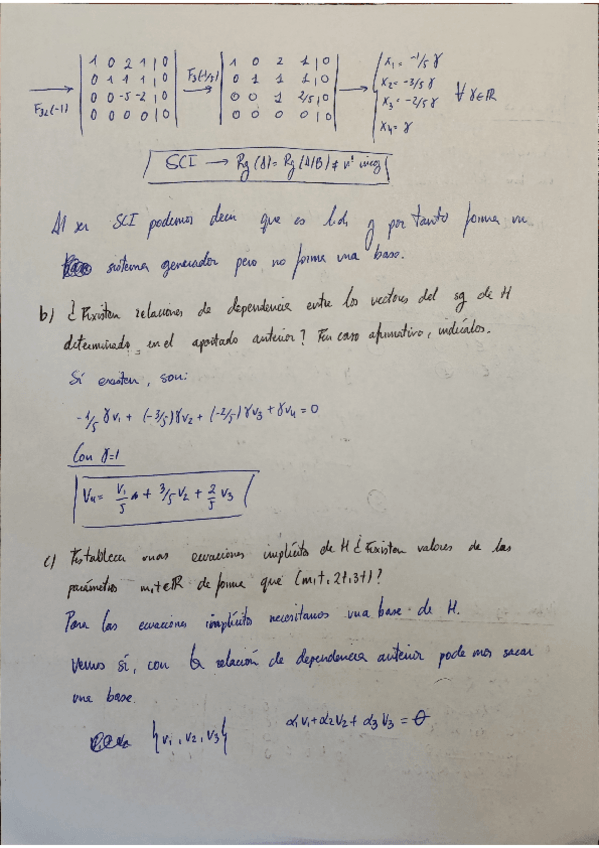 F32(-1) | 1 0 2 1 | 0 | F3(-1/5) | 1 0 2 1 | 0 | x1 = -1/5 γ
| 0 1 1 1 | 0 | | 0 1 1 1 | 0 | x2 = -3/5 γ ∀ γ∈ℝ
| 0 0 -5 -2 | 0 | | 0 0 1 2/5 | 0 | x3 = -2/5 γ
| 0 0 0 0 | 0 | | 0 0 0 0 | 0 | x4 = γ
SCI → Rg(A) = Rg(A/B) ≠ nº incog
Al ser SCI podemos decir que es l.d. y por tanto forma un
sistema generador pero no forma una base.
b) ¿Existen relaciones de dependencia entre los vectores del sg de H
determinado en el apartado anterior? En caso afirmativo, indícalos.
Sí existen, son:
-1/5 γv1 + (-3/5)γv2 + (-2/5)γv3 + γv4 = 0
Con γ=1
V4 = V1/5 + 3/5 V2 + 2/5 V3
c) Establecer unas ecuaciones implícitas de H ¿Existen valores de los
parámetros m,t∈ℝ de forma que (m,t,2t,3t)?
Para las ecuaciones implícitas necesitamos una base de H.
Vemos si, con la relación de dependencia anterior podemos sacar
una base.
{v1, v2, v3} α1v1+α2v2+α3v3 = θ